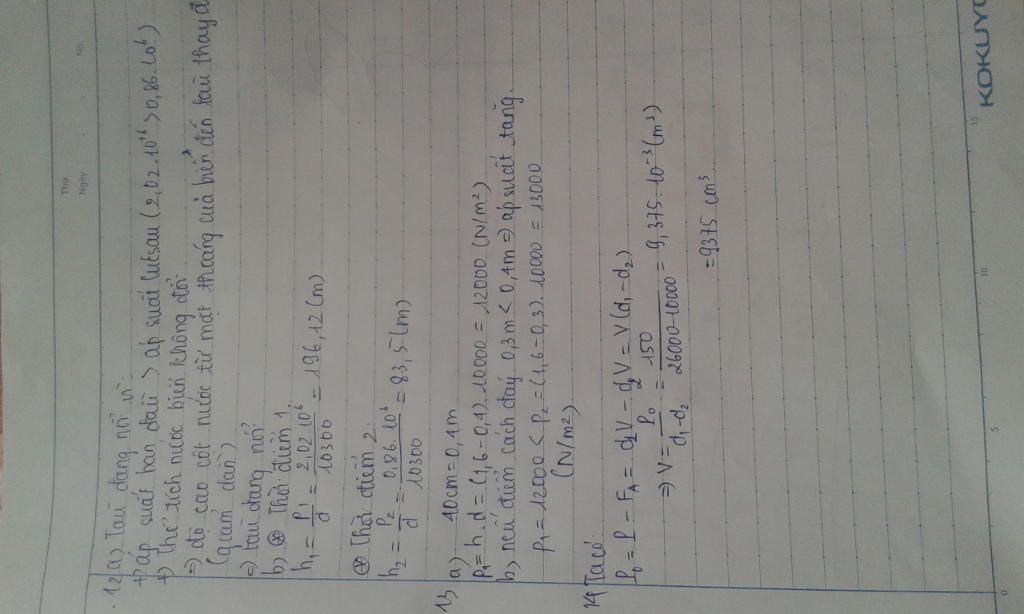 Thứ
Ngày No.
12 a) Tàu đang nổi vì:
+) áp suất ban đầu > áp suất lúc sau (2,02.10⁶ > 0,86.10⁶)
+) Thể tích nước biển không đổi
=> độ cao cột nước từ mặt thoáng của biển đến tàu thay đổ
(giảm dần)
=> tàu đang nổi
b) ⊛ Thời điểm 1
h₁ = P₁/d = 2,02.10⁶/10300 = 196,12 (m)
⊛ Thời điểm 2:
h₂ = P₂/d = 0,86.10⁶/10300 = 83,5 (m)
13 a) 40cm = 0,4m
P₁ = h.d = (1,6-0,4).10000 = 12000 (N/m²)
b) nếu điểm cách đáy 0,3m < 0,4m => áp suất tăng.
P₁ = 12000 < P₂ = (1,6-0,3).10000 = 13000
(N/m²)
14 Ta có:
P₀ = P - F_A = d₁V - d₂V = V(d₁-d₂)
=> V = P₀/d₁-d₂ = 150/26000-10000 = 9,375.10⁻³ (m³)
= 9375 cm³
0 5 10 15
KOKUYO